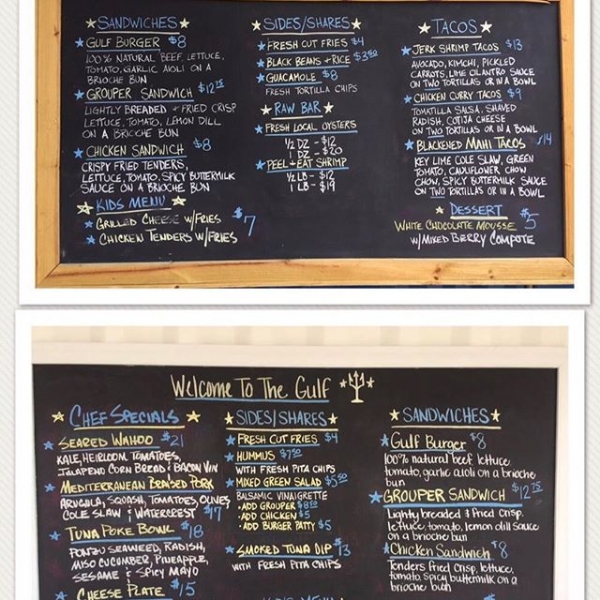 SANDWICHES
GULF BURGER $8
100% NATURAL BEEF, LETTUCE,
TOMATO, GARLIC AIOLI ON A
BRIOCHE BUN
GROUPER SANDWICH $12.75
LIGHTLY BREADED + FRIED CRISP
LETTUCE, TOMATO, LEMON DILL
ON A BRIOCHE BUN
CHICKEN SANDWICH $8
CRISPY FRIED TENDERS,
LETTUCE, TOMATO, SPICY BUTTERMILK
SAUCE ON A BRIOCHE BUN
KIDS MENU
GRILLED CHEESE W/FRIES $7
CHICKEN TENDERS W/FRIES
SIDES/SHARES
FRESH CUT FRIES $4
BLACK BEANS + RICE $3.50
GUACAMOLE $8
FRESH TORTILLA CHIPS
RAW BAR
FRESH LOCAL OYSTERS
1/2 DZ - $12
1 DZ - $20
PEEL + EAT SHRIMP
1/2 LB - $12
1 LB - $19
TACOS
JERK SHRIMP TACOS $13
AVOCADO, KIMCHI, PICKLED
CARROTS, LIME CILANTRO SAUCE
ON TWO TORTILLAS OR IN A BOWL
CHICKEN CURRY TACOS $9
TOMATILLA SALSA, SHAVED
RADISH, COTIJA CHEESE
ON TWO TORTILLAS OR IN A BOWL
BLACKENED MAHI TACOS $14
KEY LIME COLE SLAW, GREEN
TOMATO, CAULIFLOWER CHOW
CHOW, SPICY BUTTERMILK SAUCE
ON TWO TORTILLAS OR IN A BOWL
DESSERT $5
WHITE CHOCOLATE MOUSSE
W/MIXED BERRY COMPOTE
Welcome To The Gulf
CHEF SPECIALS
SEARED WAHOO $21
KALE, HEIRLOOM TOMATOES,
JALAPENO CORN BREAD & BACON VIN
MEDITERRANEAN BRAISED PORK
ARUGULA, SQUASH, TOMATOES, OLIVES
COLE SLAW & WATERCREST $17
TUNA POKE BOWL $18
PONZU SEAWEED, RADISH,
MISO CUCUMBER, PINEAPPLE,
SESAME & SPICY MAYO
CHEESE PLATE $15
SIDES/SHARES
FRESH CUT FRIES $4
HUMMUS $7.50
WITH FRESH PITA CHIPS
MIXED GREEN SALAD $5.50
BALSAMIC VINAIGRETTE
· ADD GROUPER $8.50
· ADD CHICKEN $5
· ADD BURGER PATTY $5
SMOKED TUNA DIP $13
WITH FRESH PITA CHIPS
KIDS MENU
SANDWICHES
Gulf Burger $8
100% natural beef lettuce
tomato, garlic aioli on a brioche
bun
GROUPER SANDWICH $12.75
Lightly breaded & fried crisp
lettuce, tomato, lemon dill sauce
on a brioche bun
Chicken Sandwich $8
Tenders fried crisp, lettuce,
tomato, spicy buttermilk on a
brioche bun